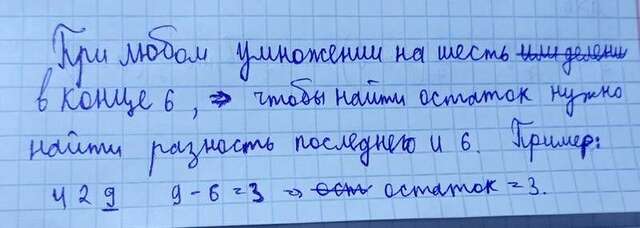 При любом умножении на шесть или делени
в конце 6, => чтобы найти остаток нужно
найти разность последнего и 6. Пример:
429 9-6=3 => ост остаток = 3.